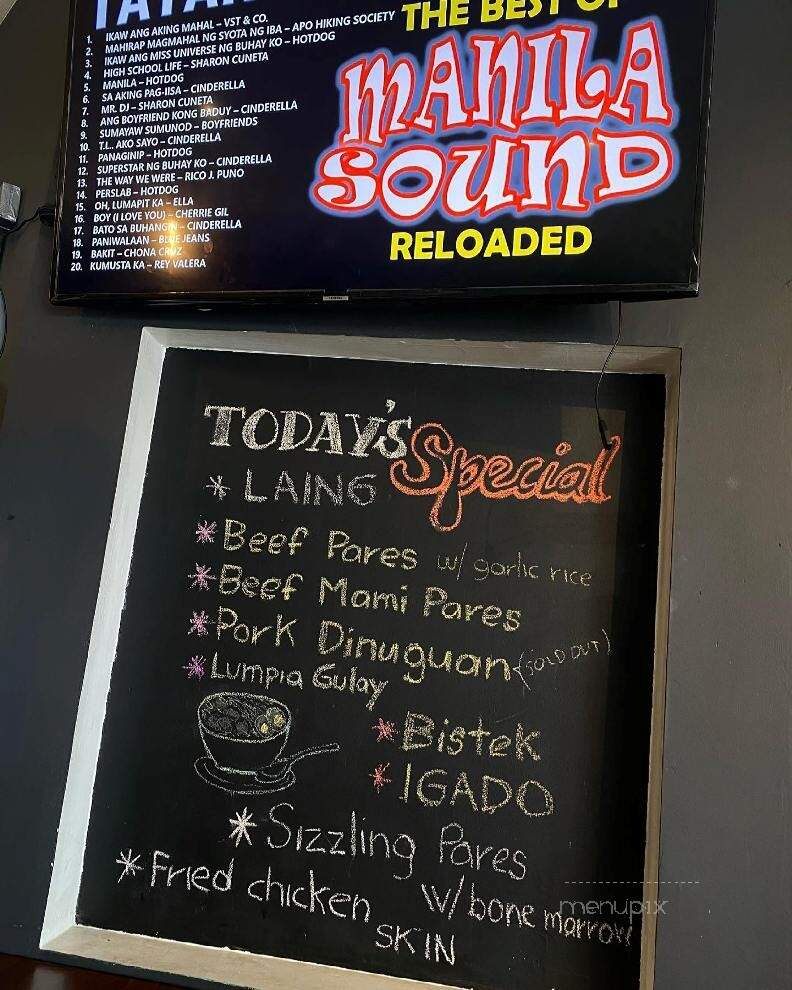 THE BEST OF
MANILA
SOUND
RELOADED
1. IKAW ANG AKING MAHAL – VST & CO.
2. MAHIRAP MAGMAHAL NG SYOTA NG IBA – APO HIKING SOCIETY
3. IKAW ANG MISS UNIVERSE NG BUHAY KO – HOTDOG
4. HIGH SCHOOL LIFE – SHARON CUNETA
5. MANILA – HOTDOG
6. SA AKING PAG-IISA – CINDERELLA
7. MR. DJ – SHARON CUNETA
8. ANG BOYFRIEND KONG BADUY – CINDERELLA
9. SUMAYAW SUMUNOD – BOYFRIENDS
10. T.L. AKO SAYO – CINDERELLA
11. PANAGINIP – HOTDOG
12. SUPERSTAR NG BUHAY KO – CINDERELLA
13. THE WAY WE WERE – RICO J. PUNO
14. PERSLAB – HOTDOG
15. OH, LUMAPIT KA – ELLA
16. BOY (I LOVE YOU) – CHERRIE GIL
17. BATO SA BUHANGIN – CINDERELLA
18. PANIWALAAN – BLUE JEANS
19. BAKIT – CHONA CRUZ
20. KUMUSTA KA – REY VALERA
TODAY'S Special
* LAING
* Beef Pares w/ garlic rice
* Beef Mami Pares
* Pork Dinuguan (SOLD OUT)
* Lumpia Gulay
* Bistek
* IGADO
* Sizzling Pares
w/ bone marrow
* Fried chicken
SKIN
menupix